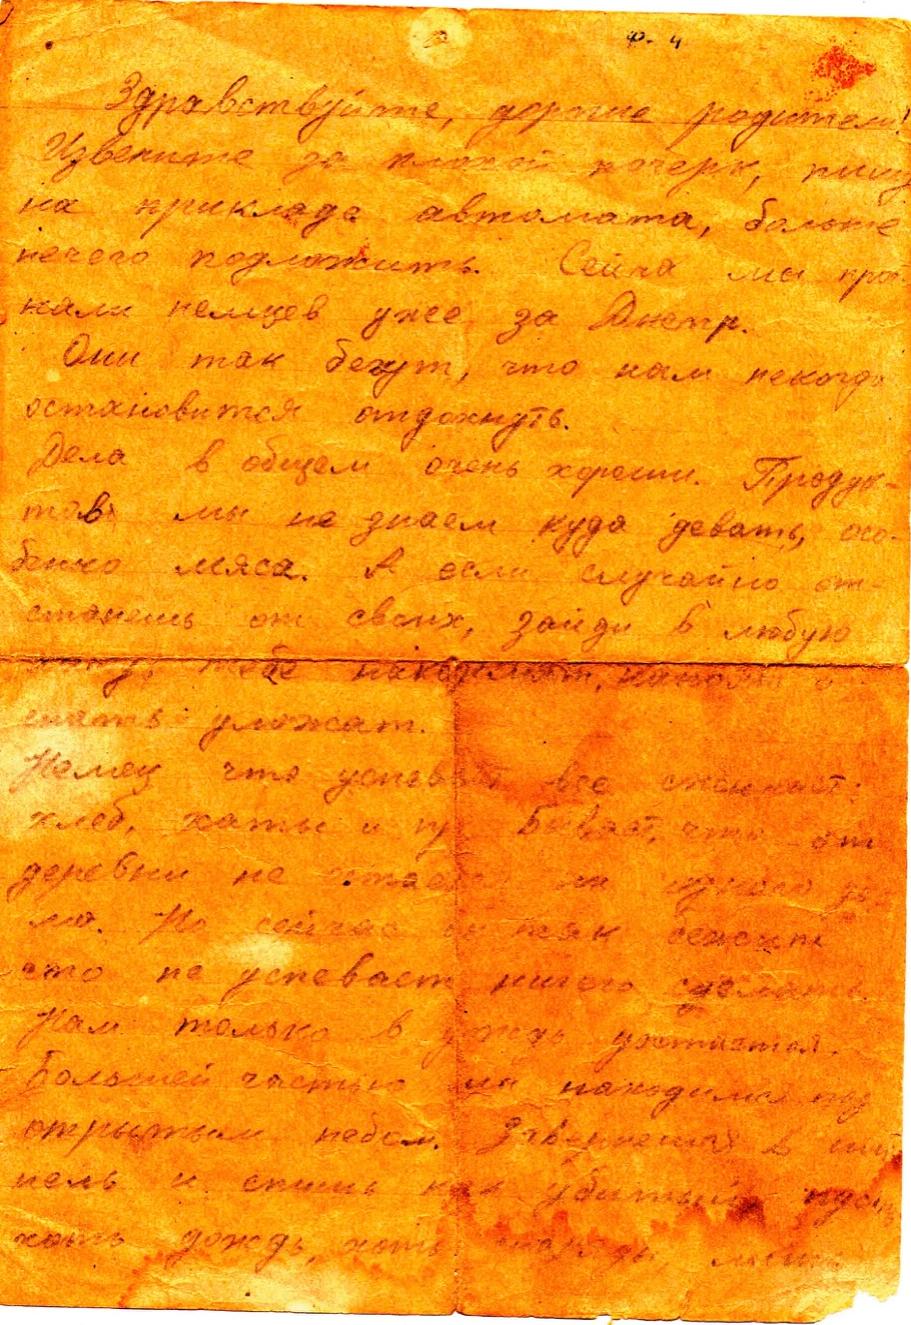 ф. 4
Здравствуйте, дорогие родители!
Извените за плохой почерк, пишу
на приклада автомата, больше
нечего подложить. Сейча мы про
нали немцев уже за Днепр.
Они так бегут, что нам некогда
остановится отдохнуть.
Дела в общем очень хороши. Продук-
тов мы не знаем куда девать, осо-
бенно мяса. А если случайно от-
станешь от своих, зайди в любую
тебе накормят, напоят и
спать уложат.
Немец что успевает все сжигает:
хлеб, хаты и пр. Бывает, что от
деревни не остается ни одного до-
ма. Но сейчас он так бежит
что не успевает ничего сделать.
Нам только в дождь
Большей частью мы находимся под
открытым небом. Завернешься в ши
нель и спишь как убитый, пусть
хоть дождь, хоть